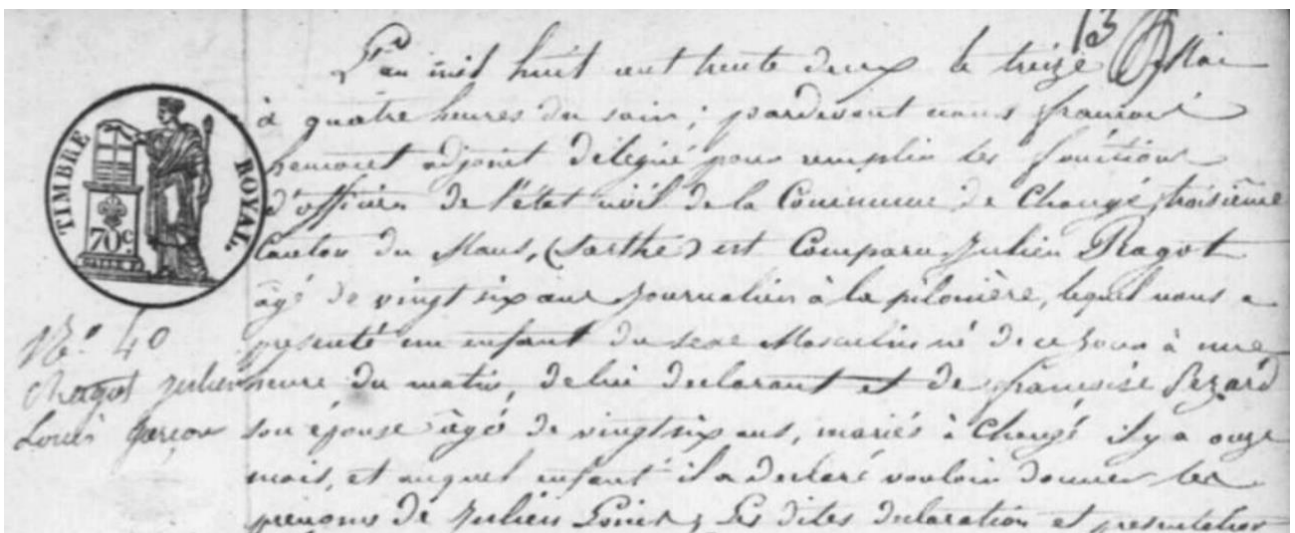 13
L'an mil huit cent trente deux le treize Mai
à quatre heures du soir; pardevant nous françois
adjoint délégué pour remplir les fonctions
d'officier de l'état civil de la Commune de Changé, troisième
Canton du Mans, (Sarthe) est Comparu Julien Ragot
âgé de vingt six ans journalier à la pilonière, lequel nous a
présenté un enfant du sexe Masculin né de ce jour à une
heure du matin, de lui déclarant et de françoise
son épouse âgée de vingt six ans, mariés à Changé il y a onze
mois, et auquel enfant il a déclaré vouloir donner les
prénoms de Julien Louis; Les dites déclaration et présentation
TIMBRE ROYAL
70c
No. 40
Ragot Julien
Louis garçon